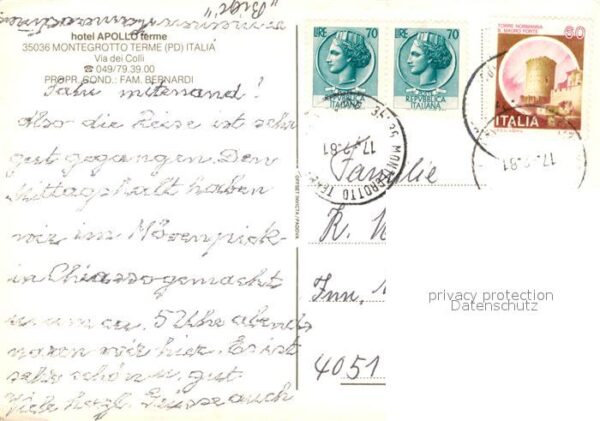 "Bigi"
hotel APOLLO terme
35036 MONTEGROTTO TERME (PD) ITALIA
Via dei Colli
☎ 049/79.39.00
PROPR. COND.: FAM. BERNARDI
Sali mitenand!
Also die Reise ist sehr
gut gegangen. Den
Mittagshalt haben
wir im Mövenpick
in Chiasso gemacht
u. um ca. 5 Uhr abends
waren wir hier. Es ist
sehr schön u. gut
Viele herzl. Grüsse auch
OFFSET INVICTA / PADOVA
LIRE 70
REPVBBLICA
ITALIANA
LIRE 70
REPVBBLICA
ITALIANA
TORRE NORMANNA
S. MAURO FORTE
80
ITALIA
MONTEGROTTO TERME
17.9.81
17.9.81
Familie
K.
Inn.
4051
privacy protection
Datenschutz